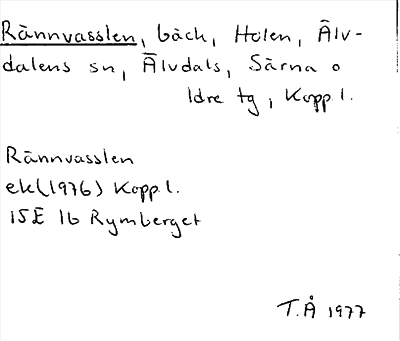 Rännvasslen, bäck, Holen, Älv-
dalens sn, Älvdals, Särna o
Idre tg, Kopp l.
Rännvasslen
ek (1976) Kopp l.
15E 1b Rymberget
T.Å 1977